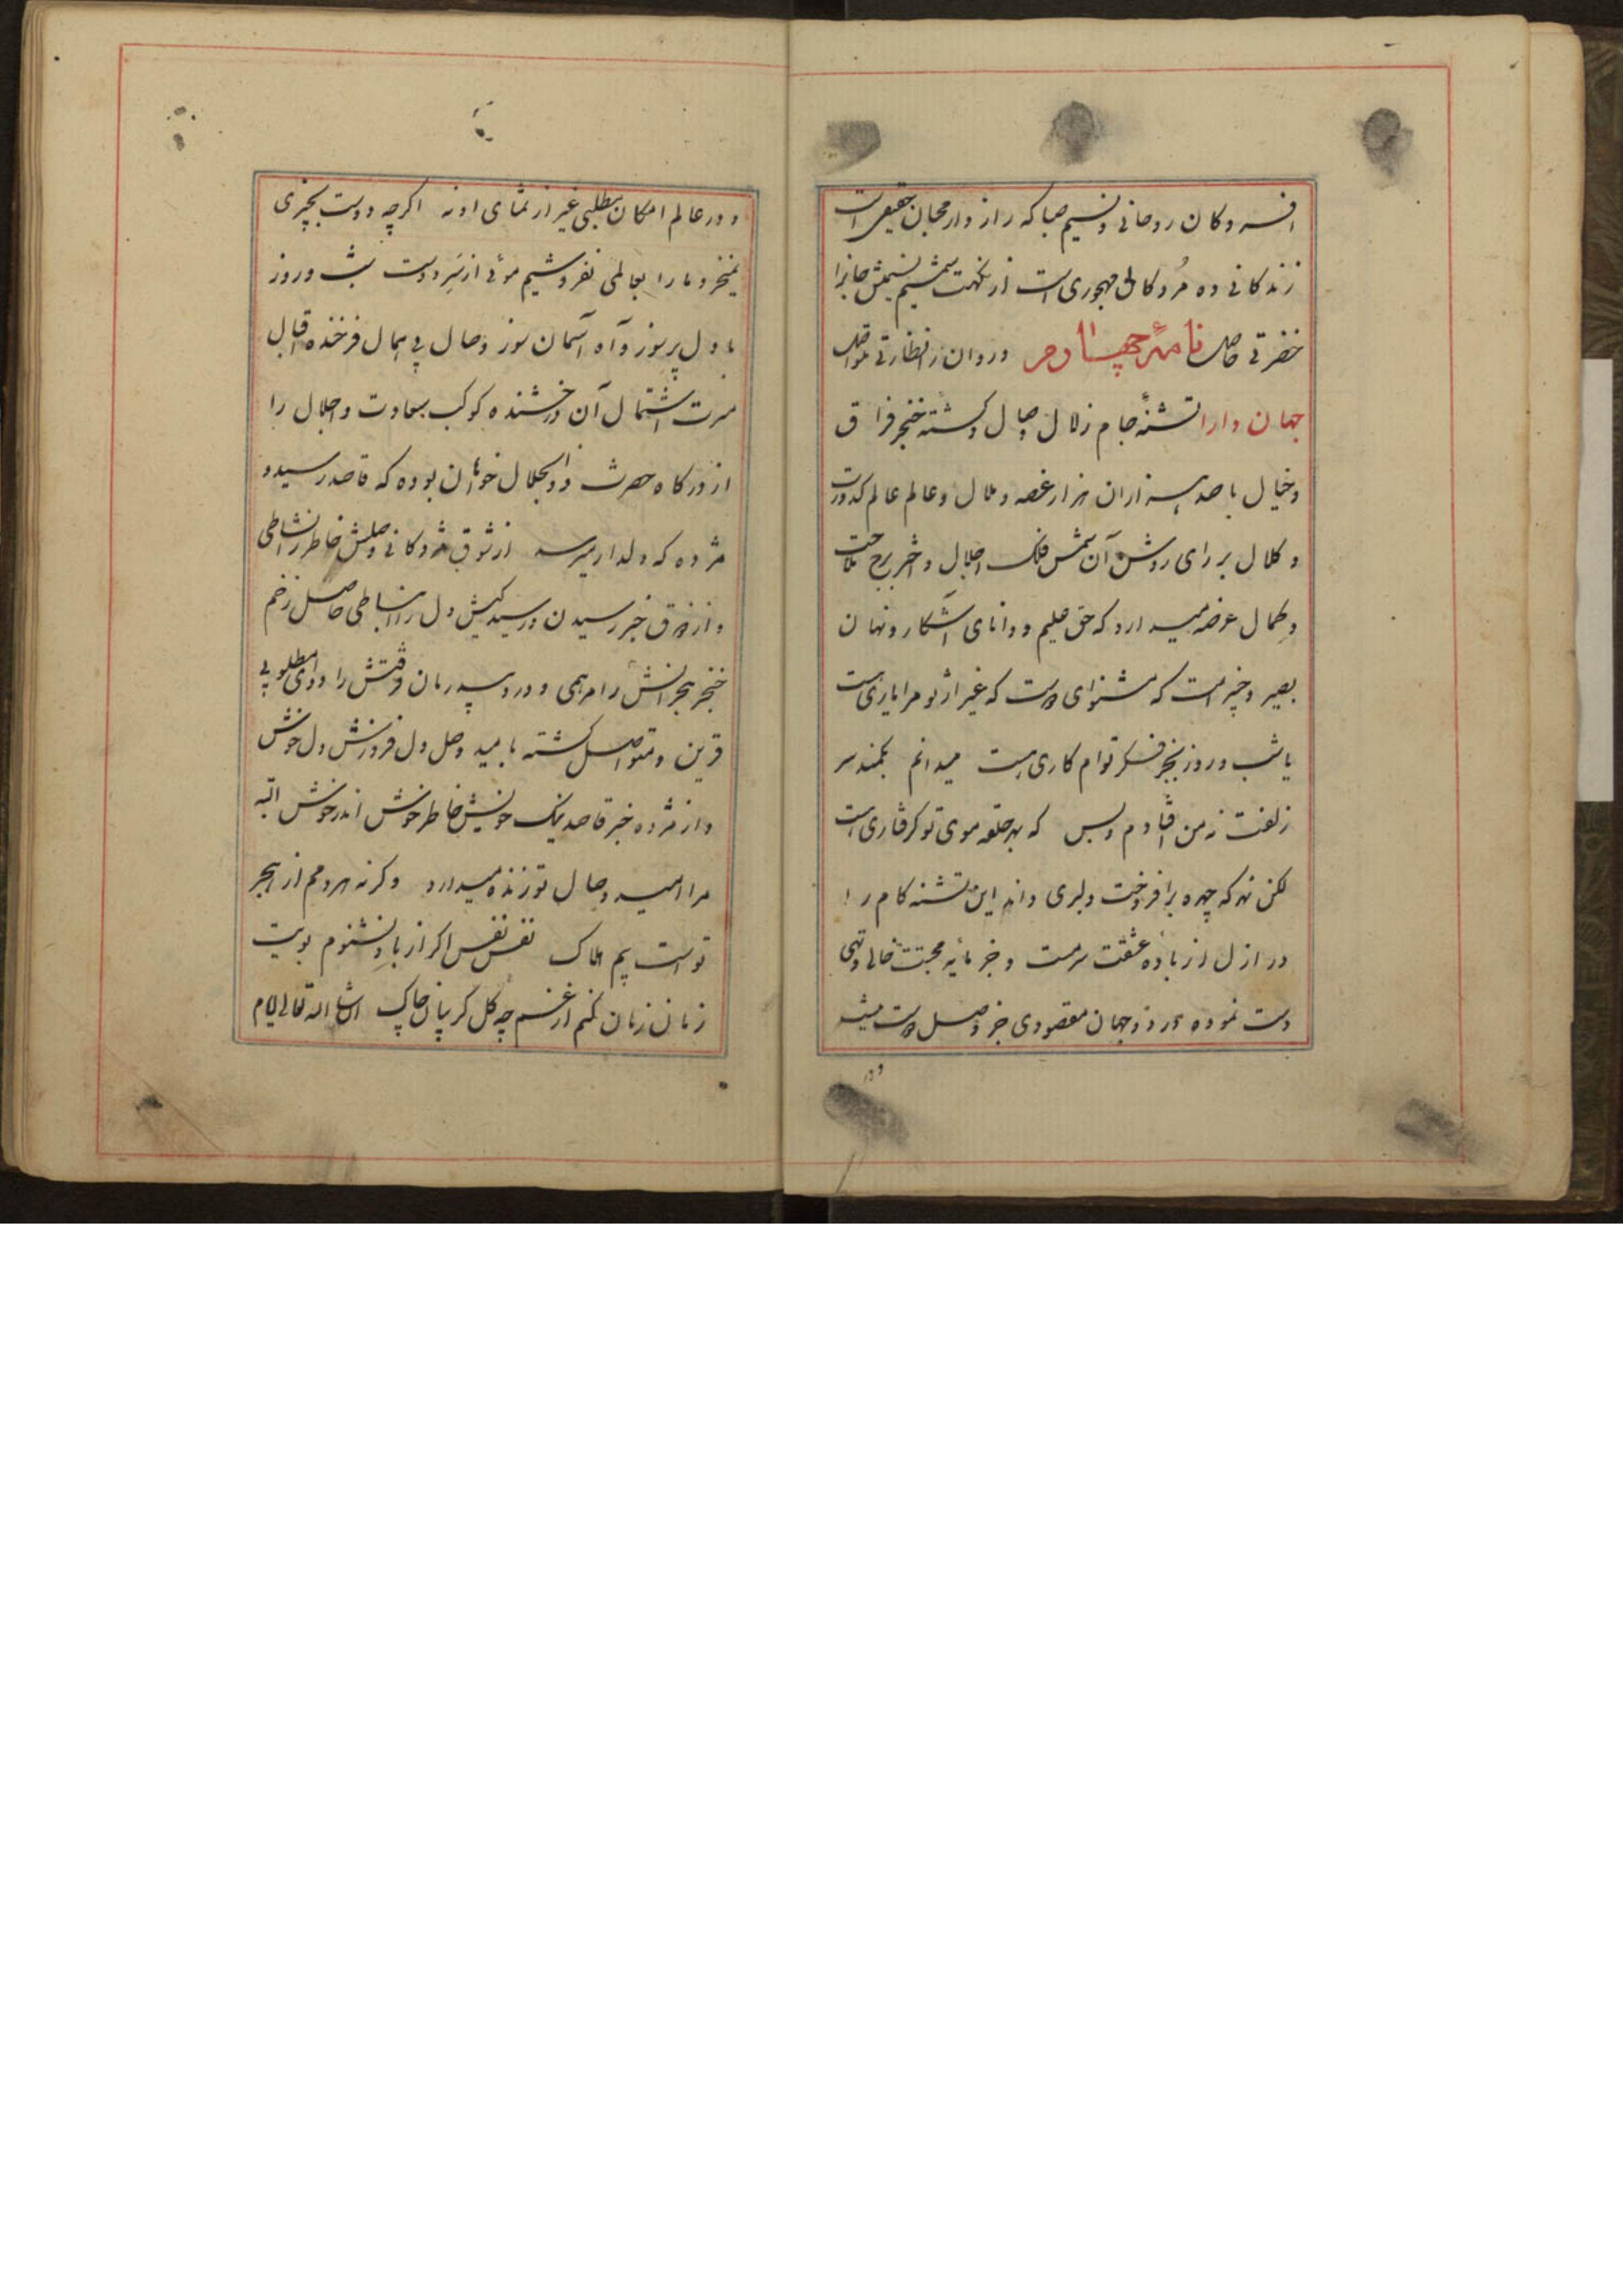 افسردکان روحانی و نسیم صبا که راز دار محبان حقیقی است
زندکانی ده مردکان مهجوری است از نکهت شمیم نسیمش جانرا
خضرتی حاصل نامهٔ چهاردهم و روان را نظارتی متواصل
جهان دارا تشنهٔ جام زلال وصال و کشتهٔ خنجر فراق
و خیال با صد هزاران هزار غصه و ملال و عالم عالم کدورت
و کلال بر رای روشن آن شمس فلک اجلال و اختر برج ملاحت
و کمال عرضه میدارد که حق علیم و دانای آشکار و نهان
بصیر و خبیر است که مشنو ای دوست که غیر از تو مرا یاری هست
یا شب و روز بجز فکر توام کاری هست میدانم بکمند سر
زلفت نه من افتادم و بس که بهر حلقه موی تو کرفتاری هست
لکن نه هر که چهره برافروخت دلبری داند این تشنه کام را
در ازل از باده عشقت سرمست و جز مایه محبتت خالی و تهی
دست نموده در دو جهان مقصودی جز وصل دوست نیست
و در
و در عالم امکان مطلبی غیر از تمنای او نه اکرچه دوست بچیزی
نمیخرد ما را بعالمی نفروشیم موئی از سر دوست شب و روز
با دل پرسوز و آه آسمان سوز وصال بی همال فرخنده اقبال
مسرت اشتمال آن درخشنده کوکب سعادت و اجلال را
از درکاه حضرت ذو الجلال خواهان بوده که قاصد رسید و
مژده که دلدار میرسد از شوق مژدکانی وصلش خاطر را نشاطی
و از ذوق خبر رسیدن و رسیدکیش دل را انبساطی حاصل زخم
خنجر هجرانش را مرهمی و درد بیدرمان فرقتش را دوای مطلوبی
قرین و متواصل کشته بامید وصل دل فروزش دل خوش
و از مژده خبر قاصد نیک خویش خاطر خوش اندر خوش البته
مرا امید وصال تو زنده میدارد و کرنه هر دمم از هجر
تو است بیم هلاک نفس نفس اکر از باد نشنوم بویت
زمان زمان کنم از غم چه کل کریبان چاک ان شا الله تعالی ایام